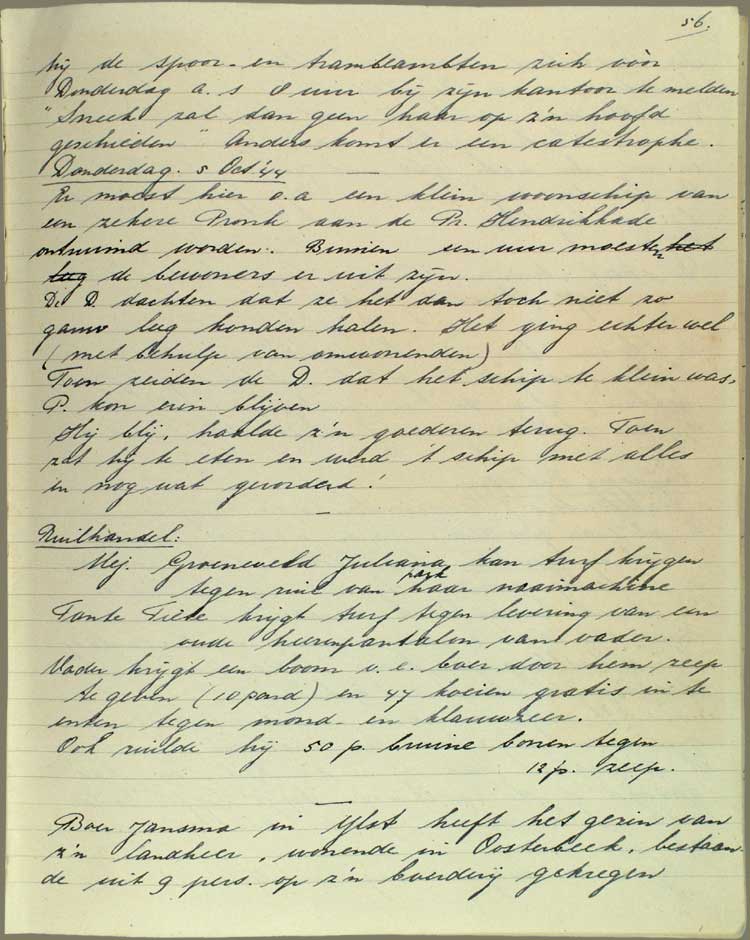 56.
hij de spoor- en trambeambten zich vòòr
Donderdag a.s 8 uur bij zijn kantoor te melden
"Sneek zal dan geen haar op z'n hoofd
geschieden" Anders komt er een catastrophe.
Donderdag. 5 Oct. '44
Er moest hier o.a een klein woonschip van
een zekere Pronk aan de Pr. Hendrikkade
ontruimd worden. Binnen een uur moesten het
leeg de bewoners er uit zijn.
De D. dachten dat ze het dan toch niet zo
gauw leeg konden halen. Het ging echter wel
(met behulp van omwonenden)
Toen zeiden de D. dat het schip te klein was,
P. kon erin blijven
Hij blij, haalde z'n goederen terug. Toen
zat hij te eten en werd 't schip met alles
en nog wat gevorderd!
Ruilhandel:
Mej. Groeneveld Juliana park kan turf krijgen
tegen ruil van haar naaimachine
Tante Tiete krijgt turf tegen levering van een
oude heerenpantalon van vader.
Vader krijgt een boom v. e. boer door hem zeep
te geven (10 pond) en 47 koeien gratis in te
enten tegen mond- en klauwzeer.
Ook ruilde hij 50 p. bruine bonen tegen
12 p. zeep.
Boer Jansma in Ylst heeft het gezin van
z'n landheer, wonende in Oosterbeek, bestaan-
de uit 9 pers. op z'n boerderij gekregen